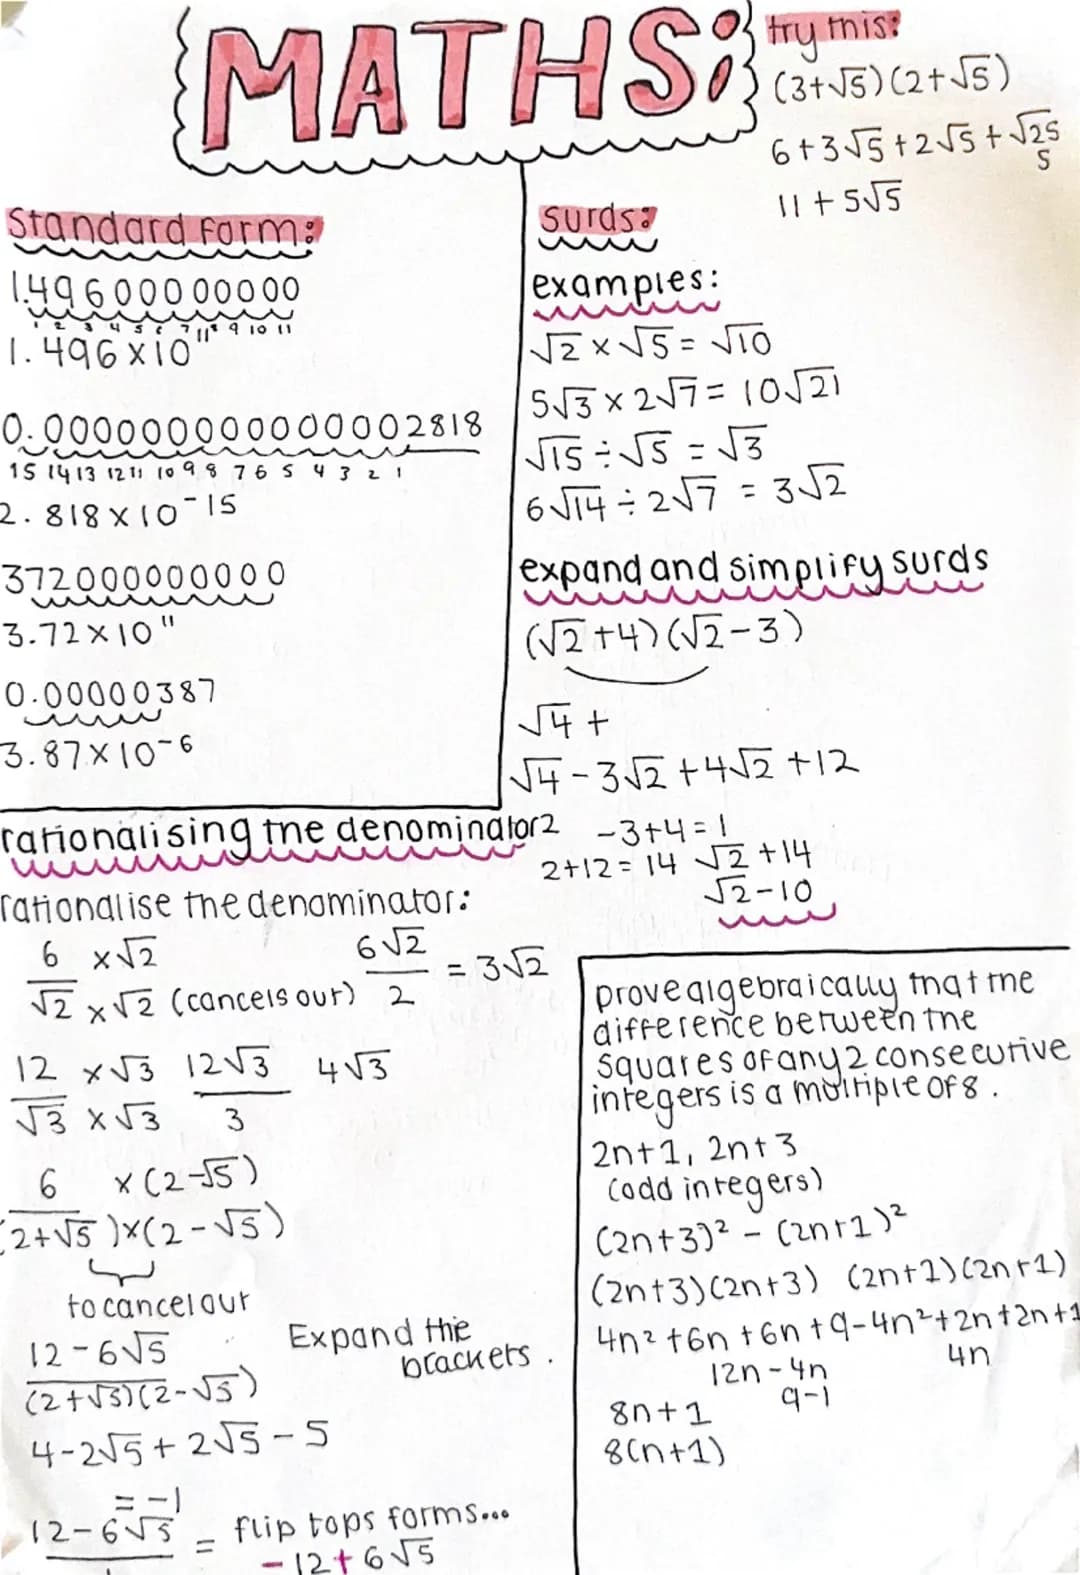 MATHS:
try this:
(3+√5)(2+√5)
6+3√5+2√5+√25
5
11+5√5
Standard form:
1.49600000000
1 2 3 4 5 6 7 8 9 10 11
1.496×10¹¹
0.000000000000002818
15 14 13 12 11 10 9 8 7 6 5 4 3 2 1
2.818×10⁻¹⁵
372000000000
3.72×10¹¹
0.00000387
3.87×10⁻⁶
surds:
examples:
√2×√5=√10
5√3×2√7=10√21
√15÷√5=√3
6√14÷2√7=3√2
expand and simplify surds
(√2+4)(√2-3)
√4+
√4-3√2+4√2+12
2 -3+4=1
2+12=14 √2+14
√2-10
rationalising the denominator
rationalise the denominator:
6 ×√2 6√2
= 3√2
√2 ×√2 (cancels out) 2
12 ×√3 12√3 4√3
√3 ×√3 3
6 ×(2-√5)
(2+√5)×(2-√5)
to cancel out
12-6√5
Expand the
brackets.
(2+√5)(2-√5)
4-2√5+2√5-5
=-1
12-6√5 = flip tops forms...
-12+6√5
prove algebraically that the
difference between the
squares of any 2 consecutive
integers is a multiple of 8.
2n+1, 2n+3
(odd integers)
(2n+3)²-(2n+1)²
(2n+3)(2n+3) (2n+1)(2n+1)
4n²+6n+6n+9-4n²+2n+2n+1
12n-4n 4n
9-1
8n+1
8(n+1)